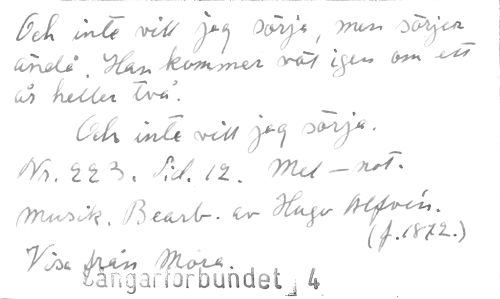 Och inte vill jag sörja, men sörjer
ändå. Han kommer väl igen om ett
år heller två.
Och inte vill jag sörja.
Nr. 223. Sid. 12. Mel – not.
musik. Bearb. av Hugo Alfvén.
(f. 1872.)
Visa från Mora.
Sångarförbundet 4